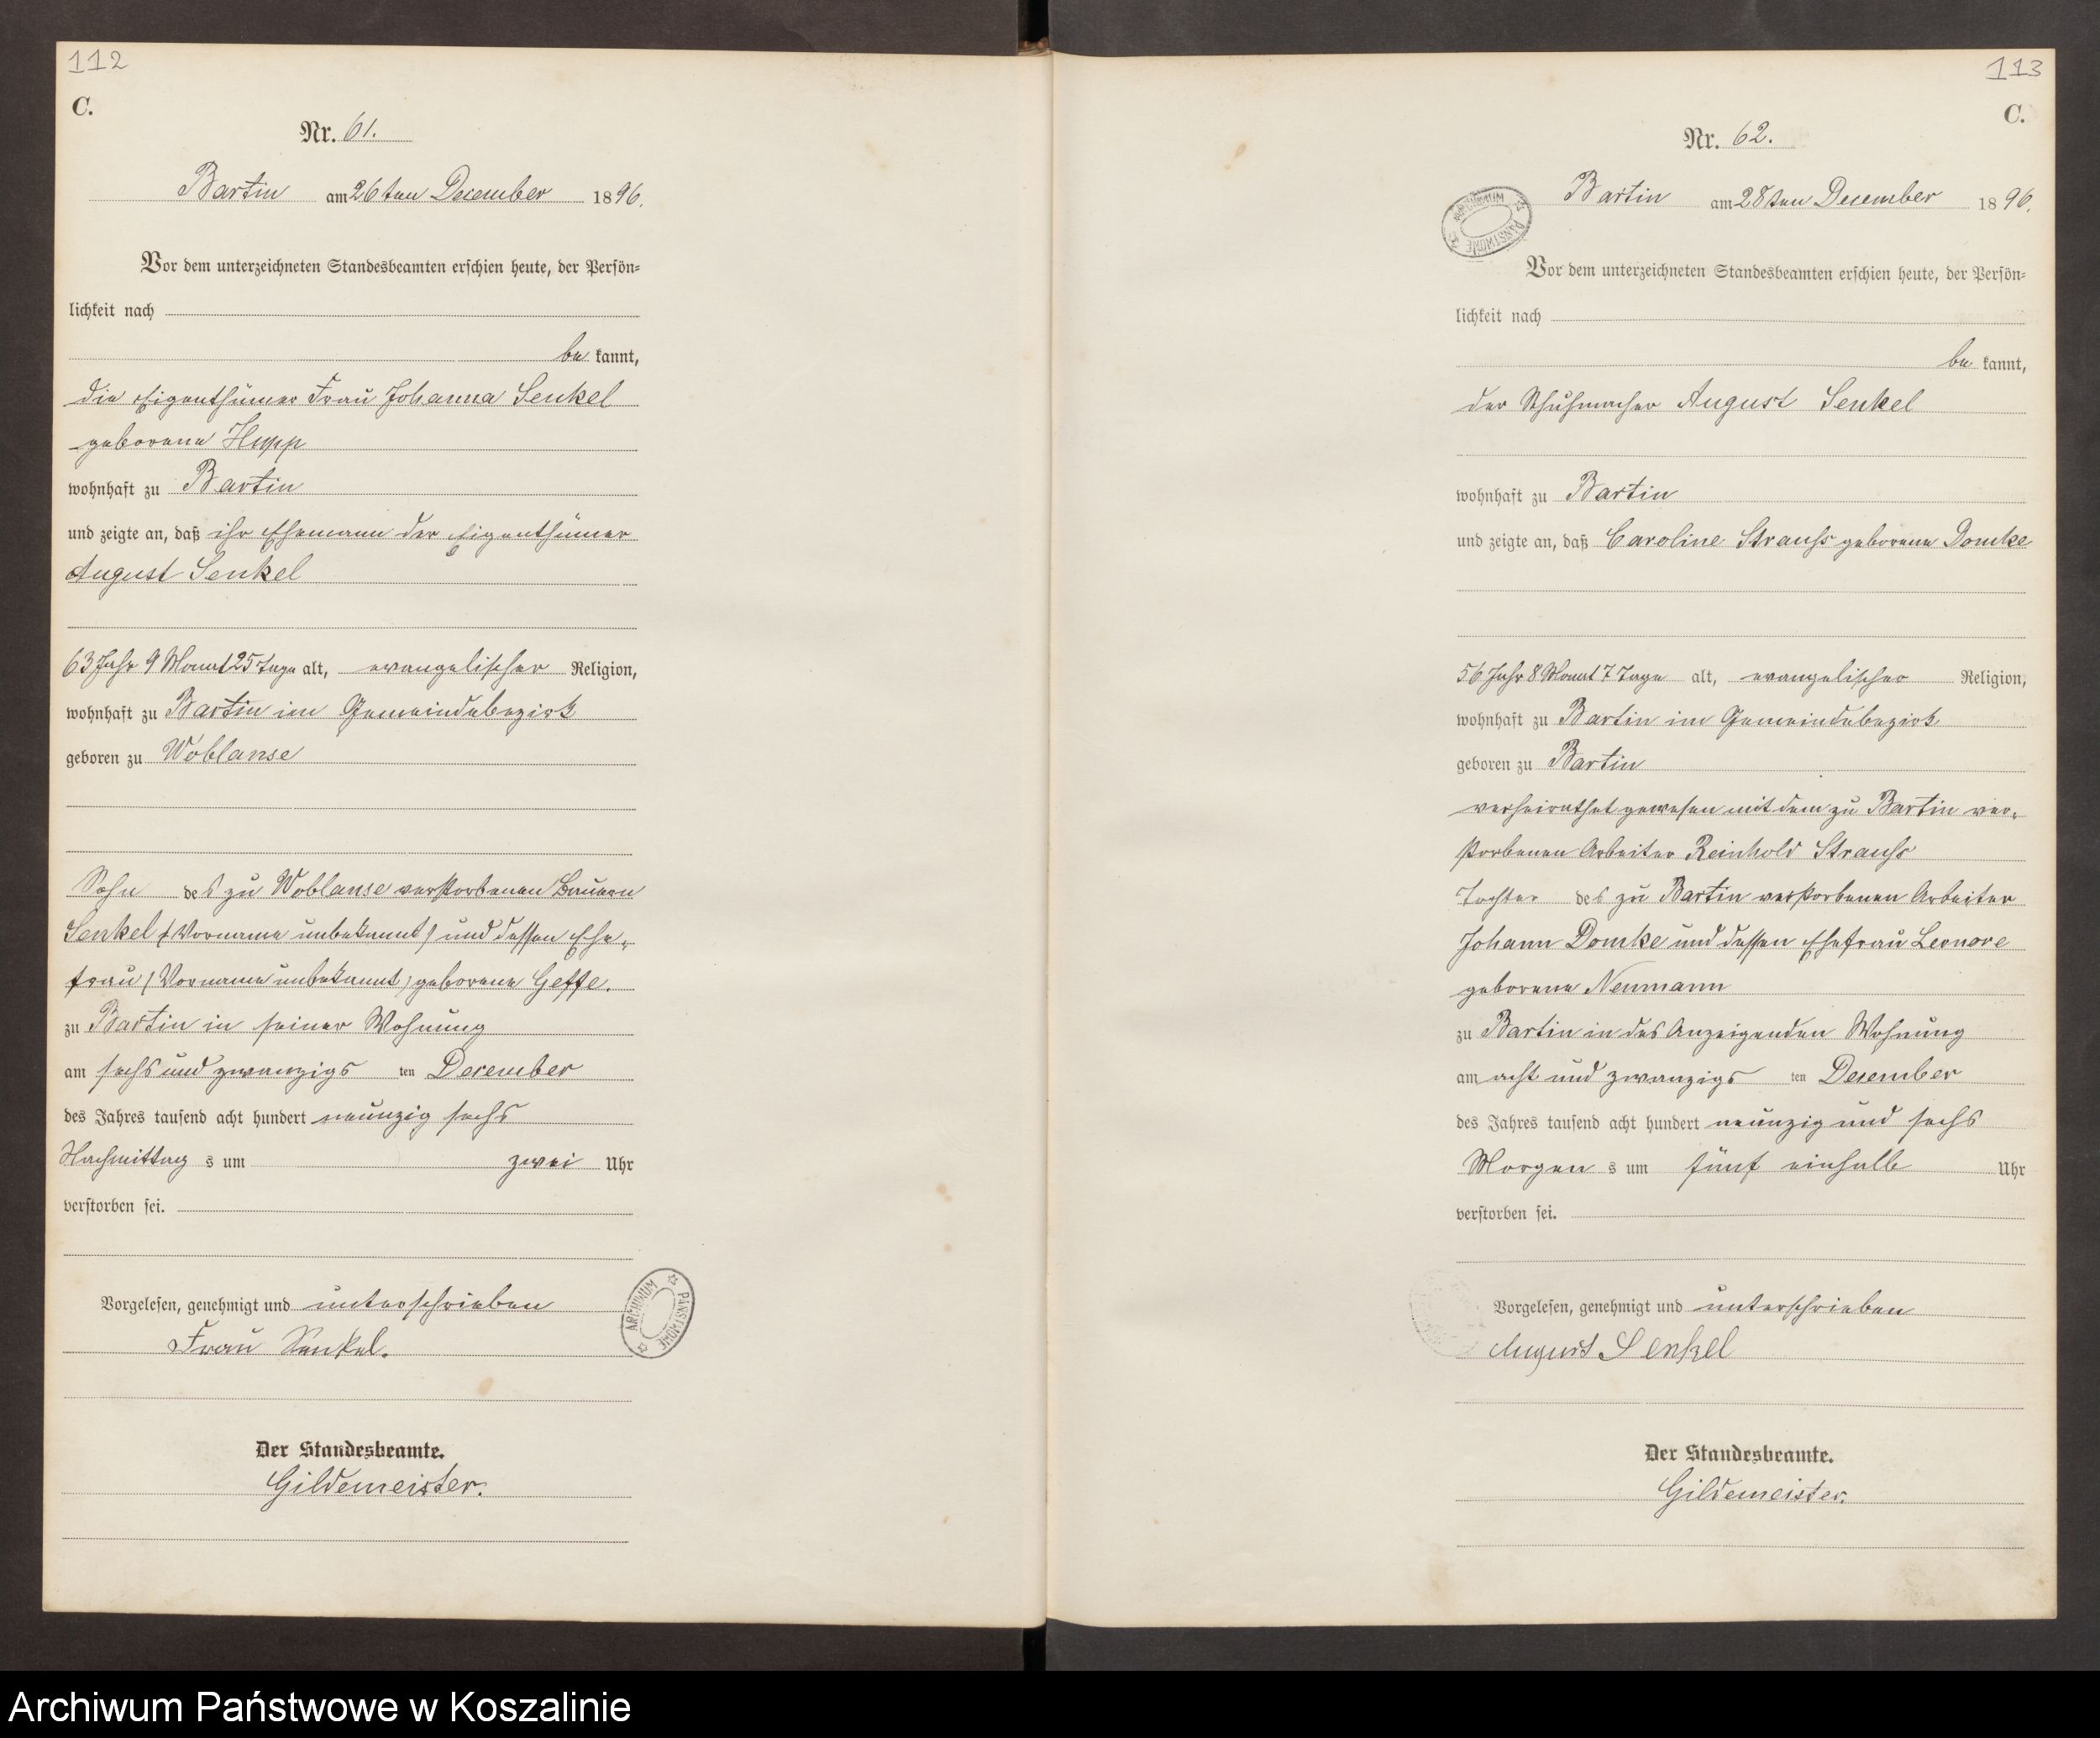 112
C.
Nr. 61.
Bartin am 26ten December 1896.
Vor dem unterzeichneten Standesbeamten erschien heute, der Persön=
lichkeit nach
be kannt,
die Eigenthümer Frau Johanna Senkel
geborene Hupp
wohnhaft zu Bartin
und zeigte an, daß ihr Ehemann der Eigenthümer
August Senkel
63 Jahr 9 Monat 25 Tage alt, evangelischer Religion,
wohnhaft zu Bartin im Gemeindebezirk
geboren zu Woblanse
Sohn des zu Woblanse verstorbenen Bauern
Senkel (Vorname unbekannt) und dessen Ehe=
frau (Vorname unbekannt) geborene Geffe.
zu Bartin in seiner Wohnung
am sechs und zwanzigs ten December
des Jahres tausend acht hundert neunzig sechs
Nachmittag s um zwei Uhr
verstorben sei.
Vorgelesen, genehmigt und unterschrieben
Frau Senkel.
Der Standesbeamte.
Gildemeister.
ARCHIWUM PAŃSTWOWE
113
C.
Nr. 62.
Bartin am 28ten December 1896.
ARCHIWUM PAŃSTWOWE
Vor dem unterzeichneten Standesbeamten erschien heute, der Persön=
lichkeit nach
be kannt,
der Schuhmacher August Senkel
wohnhaft zu Bartin
und zeigte an, daß Caroline Strauss geborene Domke
56 Jahr 8 Monat 7 Tage alt, evangelischer Religion,
wohnhaft zu Bartin im Gemeindebezirk
geboren zu Bartin
verheirathet gewesen mit dem zu Bartin ver=
storbenen Arbeiter Reinhold Strauss
Tochter des zu Bartin verstorbenen Arbeiter
Johann Domke und dessen Ehefrau Leonore
geborene Neumann
zu Bartin in des Anzeigenden Wohnung
am acht und zwanzigs ten December
des Jahres tausend acht hundert neunzig und sechs
Morgen s um fünf einhalb Uhr
verstorben sei.
Vorgelesen, genehmigt und unterschrieben
August Senkel
Der Standesbeamte.
Gildemeister.
Archiwum Państwowe w Koszalinie